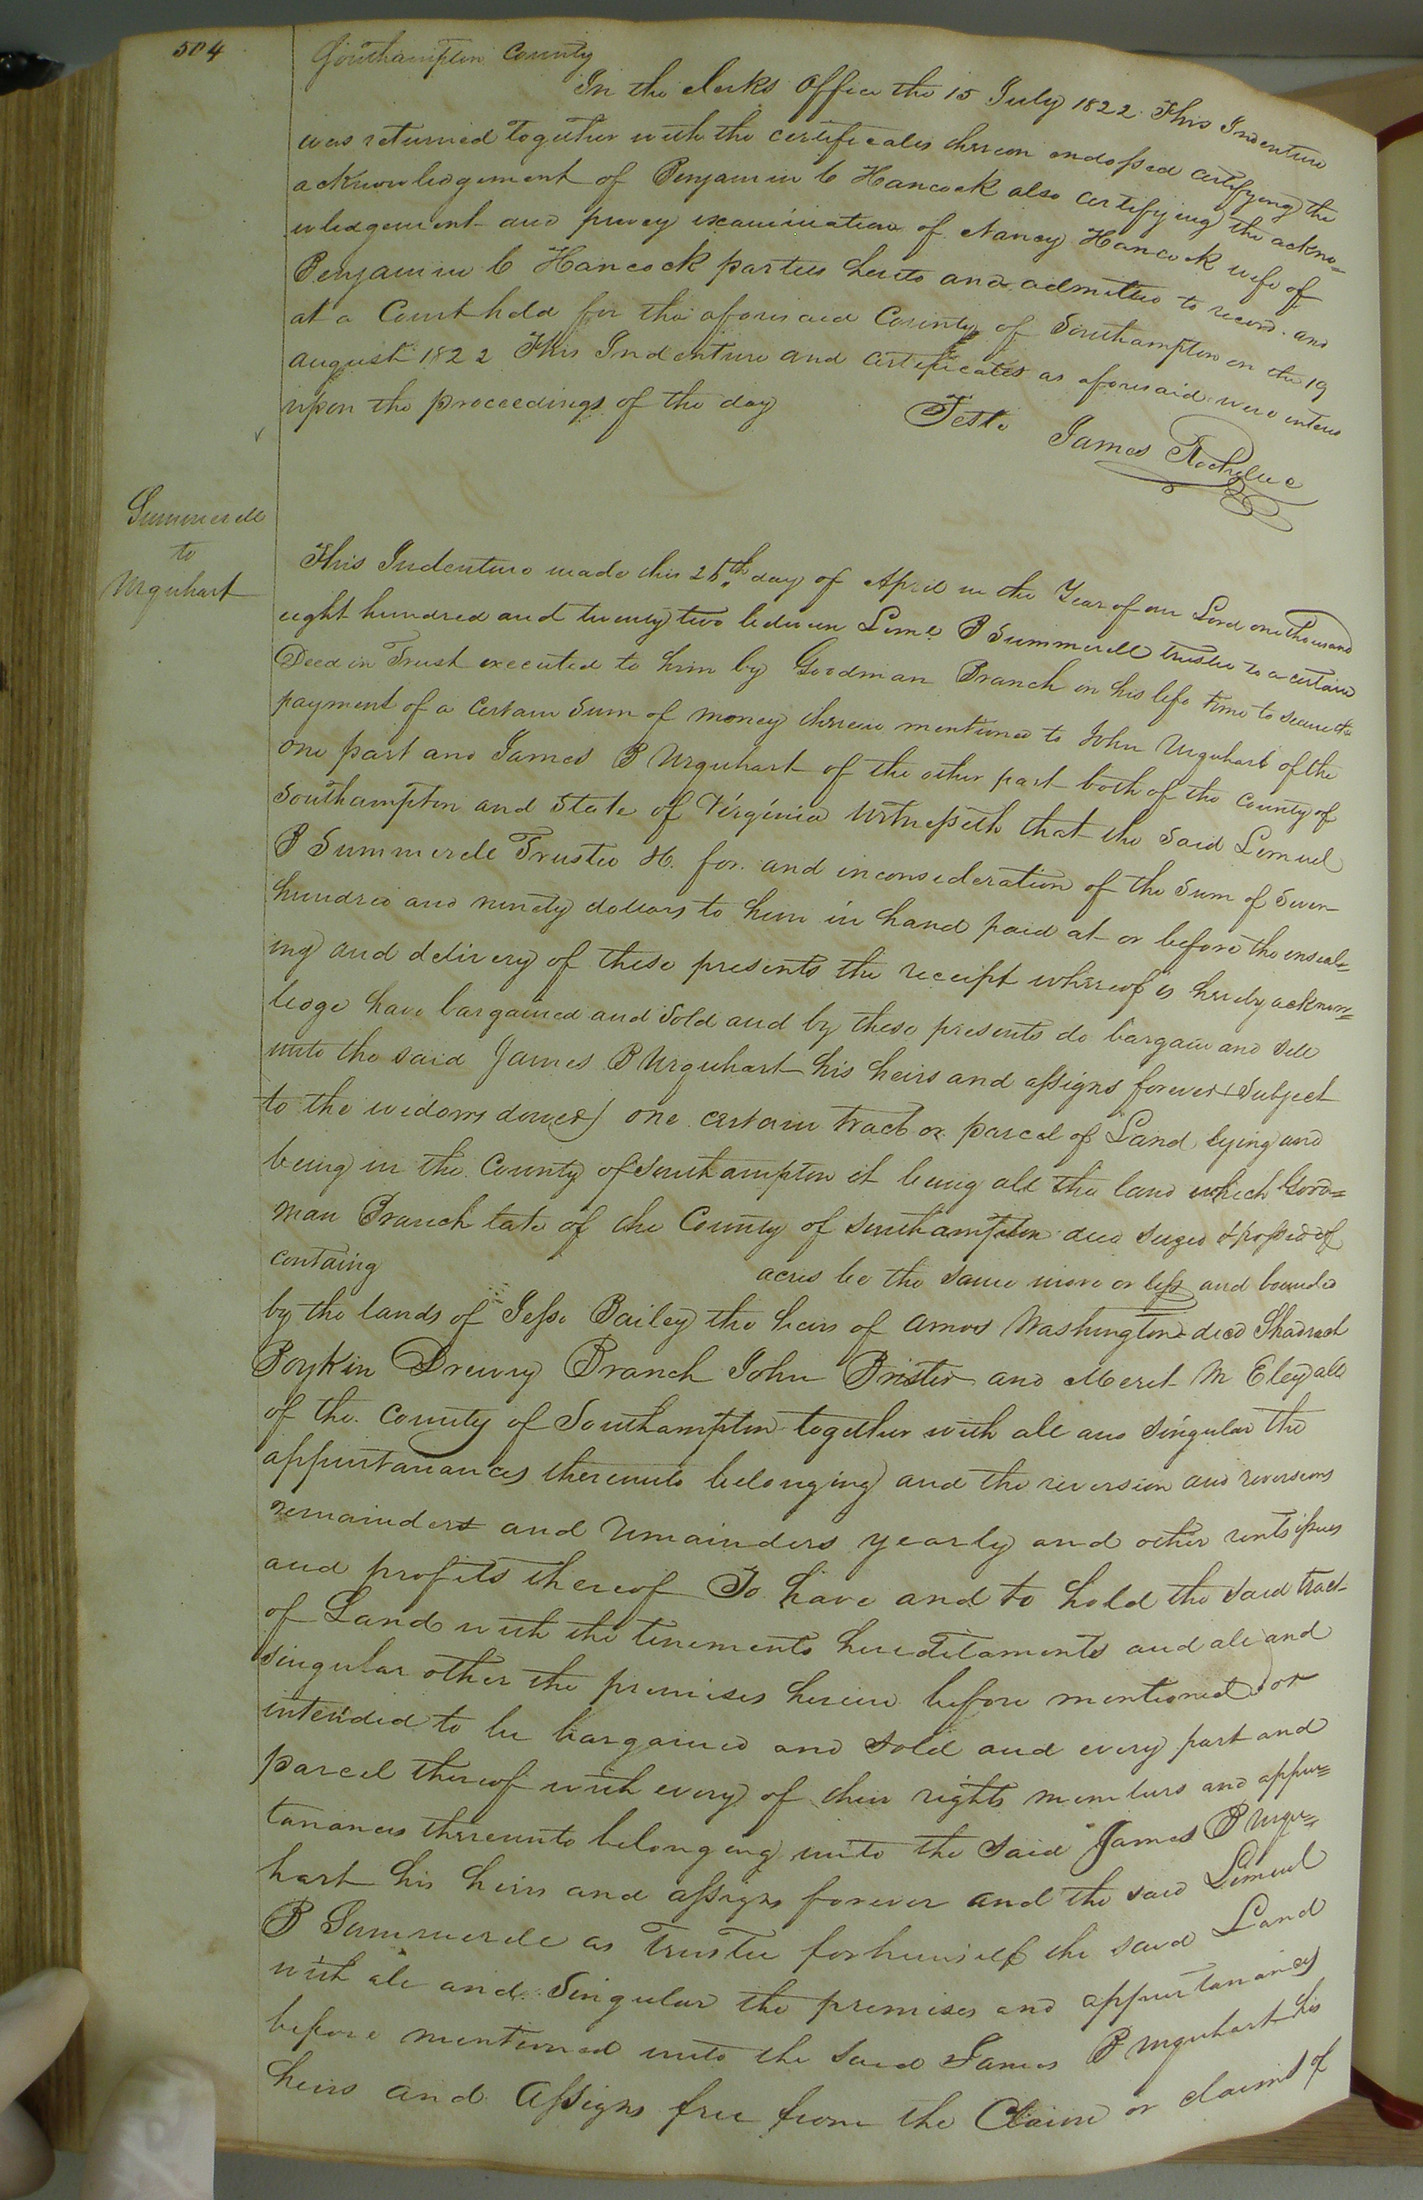 504
Southampton County
In the clerks office the 15 July 1822. This Indenture
was returned together with the certificates thereon endorsed certifying the
acknowledgement of Benjamin C Hancock also certifying the ackno=
wledgement and privey examination of Nancy Hancock wife of
Benjamin C Hancock parties hereto and admitted to record. and
at a Court held for the aforesaid County of Southampton on the 19
august 1822 This Indenture and certificates as aforesaid were entered
upon the proceedings of the day
Teste James Rochelle
Summerell
to
Urquhart
This Indenture made this 25th day of April in the Year of our Lord one thousand
eight hundred and twenty two between Leml. P Summerell trustee to a certain
Deed in Trust executed to him by Goodman Branch in his life time to secure the
payment of a certain sum of money therein mentioned to John Urquhart of the
one part and James B Urquhart of the other part both of the County of
Southampton and State of Virginia Witnesseth that the said Lemuel
P Summerell Trustee &c. for and in consideration of the sum of seven
hundred and ninety dollars to him in hand paid at or before the enseal=
ing and delivery of these presents the receipt whereof is hereby acknow=
ledge have bargained and sold and by these presents do bargain and sell
unto the said James B Urquhart his heirs and assigns forever (subject
to the widows dower) one certain tract or parcel of Land lying and
being in the County of Southampton it being all the land which Good=
man Branch late of the County of Southampton decd seized & possed of
containg acres be the same more or less and bounded
by the lands of Jesse Bailey the heirs of Amos Washington decd Shadrach
Boykin Drewry Branch John Brister and Merit M Eley all
of the County of Southampton together with all and singular the
appurtanances thereunto belonging and the reversion and reversions
remainders and remainders yearly and other rents issues
and profits thereof To have and to hold the said tract
of Land with the tenements hereditaments and all and
singular other the premises herein before mentioned or
intended to be bargained and sold and every part and
parcel thereof with every of their rights members and appur=
tanances thereunto belonging unto the said James B Urqu=
hart his heirs and assigns forever and the said Lemuel
P Summerell as Trustee for himself the said Land
with all and singular the premises and appurtanances
before mentioned unto the said James B Urquhart his
heirs and assigns free from the Claim or claims of